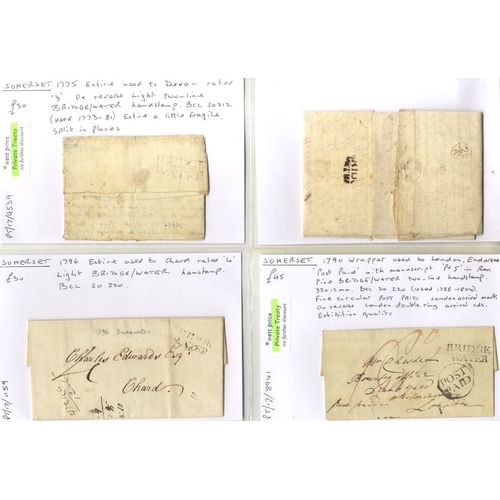 SOMERSET 1775 Entire used to Devon rated
'3' On reverse light two-line
£30
BRIDGE/WATER handstamp. BCC SO212
(used 1773-81) Entire a little fragile,
split in places
* nett price
Private Treaty
no further discount
PT/17/4539
BRIDGE
WATER
SOMERSET 1796 Entire used to Chard rated '4'
£30
Light BRIDGE/WATER handstamp.
BCC SO 220.
PT/17/1159
1796 Bridgwater
Charles Edwards Esqr
Chard
SOMERSET 1790 Wrapper used to London. Endorsed
£45
'Post Paid' with manuscript 'Pd 5' in Red
Fine BRIDGE/WATER two-line handstamp.
BCC SO 220 (used 1788-1804)
Fine circular POST PAID London arrival mark.
On reverse London double ring arrival cds.
Exhibition quality
* nett price
Private Treaty
no further discount
PT/17/8941
BRIDGE
WATER
POST
PAID
Bounty office
London